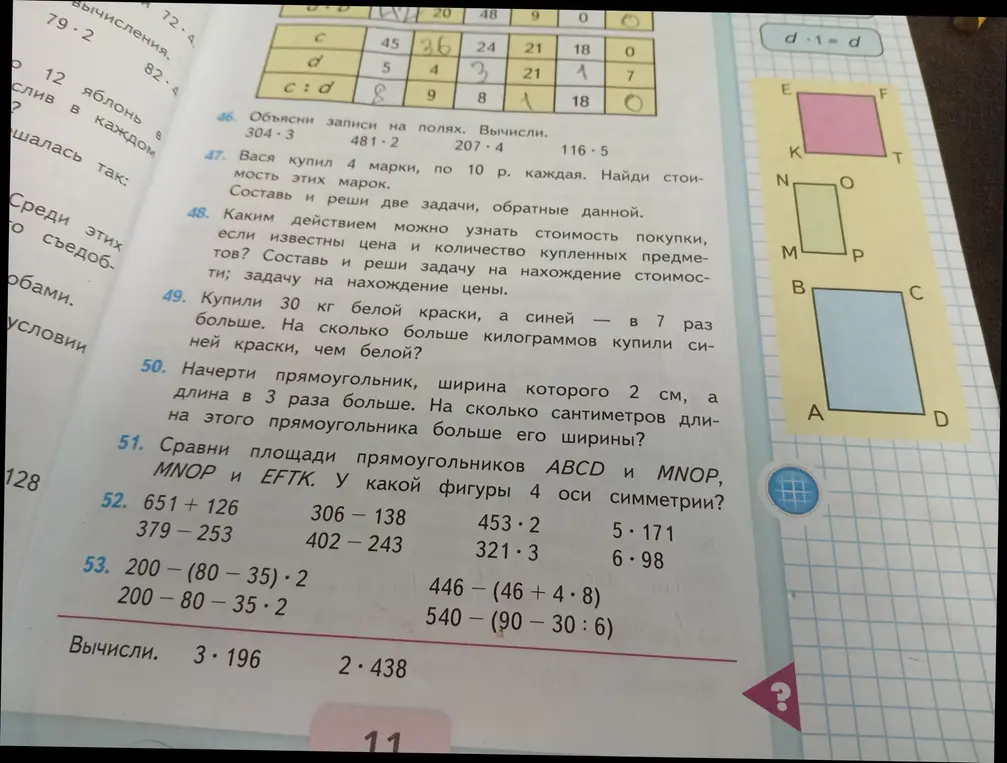 72 · 4
вычисления.
79 · 2
82 ·
12 яблонь в
слив в каждом
?
шалась так:
Среди этих
го съедоб-
обами.
условии
128
20 48 9 0 0
c 45 36 24 21 18 0
d 5 4 3 21 1 7
c : d 8 9 8 1 18 0
46. Объясни записи на полях. Вычисли.
304 · 3 481 · 2 207 · 4 116 · 5
47. Вася купил 4 марки, по 10 р. каждая. Найди стои-
мость этих марок.
Составь и реши две задачи, обратные данной.
48. Каким действием можно узнать стоимость покупки,
если известны цена и количество купленных предме-
тов? Составь и реши задачу на нахождение стоимос-
ти; задачу на нахождение цены.
49. Купили 30 кг белой краски, а синей — в 7 раз
больше. На сколько больше килограммов купили си-
ней краски, чем белой?
50. Начерти прямоугольник, ширина которого 2 см, а
длина в 3 раза больше. На сколько сантиметров дли-
на этого прямоугольника больше его ширины?
51. Сравни площади прямоугольников ABCD и MNOP,
MNOP и EFTK. У какой фигуры 4 оси симметрии?
52. 651 + 126 306 − 138 453 · 2 5 · 171
379 − 253 402 − 243 321 · 3 6 · 98
53. 200 − (80 − 35) · 2 446 − (46 + 4 · 8)
200 − 80 − 35 · 2 540 − (90 − 30 : 6)
Вычисли. 3 · 196 2 · 438
11
d · 1 = d
E F
K T
N O
M P
B C
A D
?